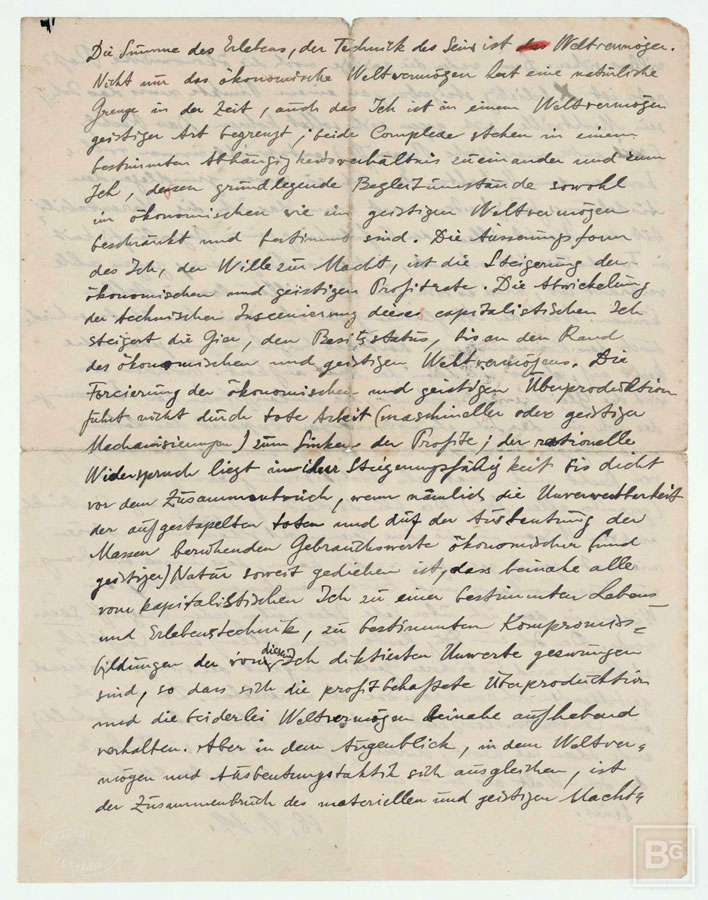 Die Summe des Erlebens, der Technik des Seins ist das Weltvermögen.
Nicht nur das ökonomische Weltvermögen hat eine natürliche
Grenze in der Zeit, auch das Ich ist in einem Weltvermögen
geistiger Art begrenzt, beide Complexe stehen in einem
bestimmten Abhängigkeitsverhältnis zueinander und zum
Ich, dessen grundlegende Begleitumstände sowohl
im ökonomischen wie im geistigen Weltvermögen
beschränkt und bestimmt sind. Die Äusserungsform
des Ich, der Wille zur Macht, ist die Steigerung der
ökonomischen und geistigen Profitrate. Die Abwickelung
der technischen Inscenierung dieses capitalistischen Ich
steigert die Gier, den Besitzstatus, bis an den Rand
des ökonomischen und geistigen Weltvermögens. Die
Forcierung der ökonomischen und geistigen Überproduktion
führt nicht durch tote Arbeit (maschineller oder geistiger
Mechanisierungen) zum Sinken der Profite; der rationelle
Widerspruch liegt in ihrer Steigerungsfähigkeit bis dicht
vor dem Zusammenbruch, wenn nämlich die Unverwertbarkeit
der aufgestapelten toten und auf der Ausbeutung der
Massen beruhenden Gebrauchswerte ökonomischer (und
geistiger) Natur soweit gediehen ist, dass beinahe alle
vom kapitalistischen Ich zu einer bestimmten Lebens-
und Erlebenstechnik, zu bestimmten Kompromiss=
bildungen der von diesem Ich diktierten Unwerte gezwungen
sind, so dass sich die profitbehaftete Überproduktion
und die beiderlei Weltvermögen beinahe aufhebend
verhalten. Aber in dem Augenblick, in dem Weltver=
mögen und Ausbeutungstaktik sich ausgleichen, ist
der Zusammenbruch des materiellen und geistigen Macht=
BG